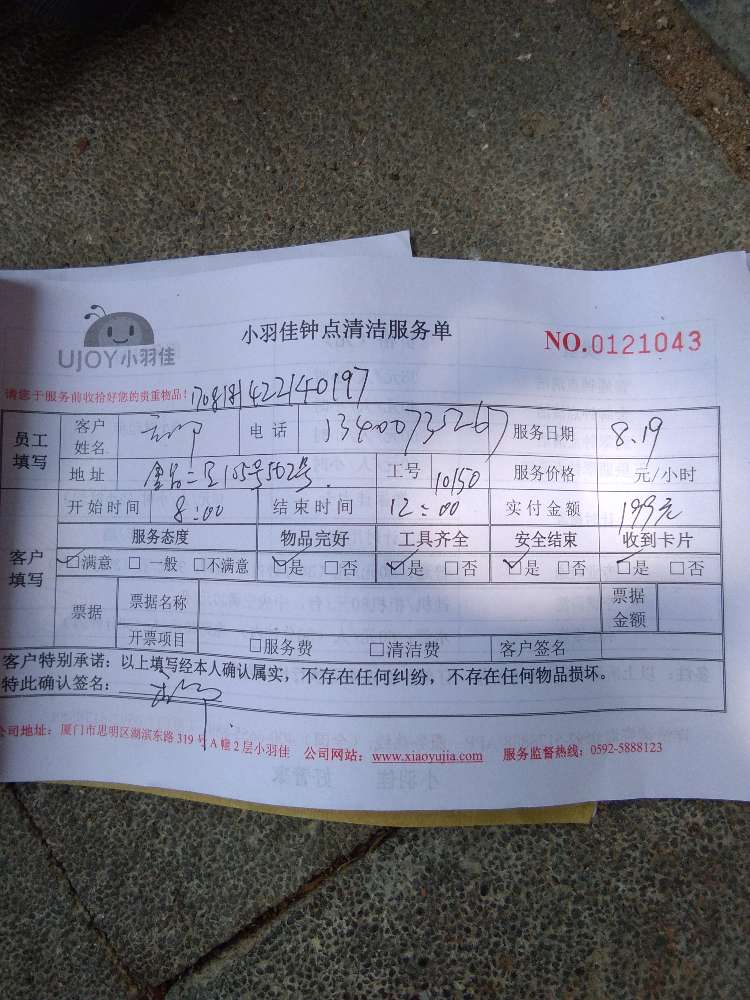 小羽佳钟点清洁服务单
NO.0121043
UJOY小羽佳
请您于服务前收拾好您的贵重物品! 1708181422140197
员工填写 客户姓名 电话 13400735267 服务日期 8.19
地址 105号502号 工号 10150 服务价格 元/小时
客户填写 开始时间 8:00 结束时间 12:00 实付金额 199元
服务态度 物品完好 工具齐全 安全结束 收到卡片
☑满意 □一般 □不满意 ☑是 □否 ☑是 □否 ☑是 □否 ☑是 □否
票据 票据名称 票据金额
开票项目 □服务费 □清洁费 客户签名
客户特别承诺：以上填写经本人确认属实，不存在任何纠纷，不存在任何物品损坏。
特此确认签名：
公司地址：厦门市思明区湖滨东路 319 号 A 幢 2 层小羽佳 公司网站：www.xiaoyujia.com 服务监督热线：0592-5888123